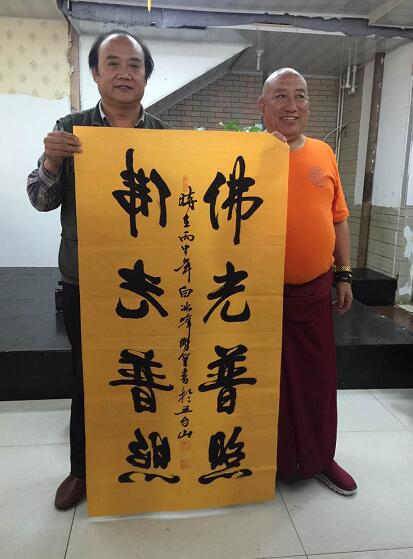 佛光普照
時在丙申年白冰峰書於五台山
佛光普照